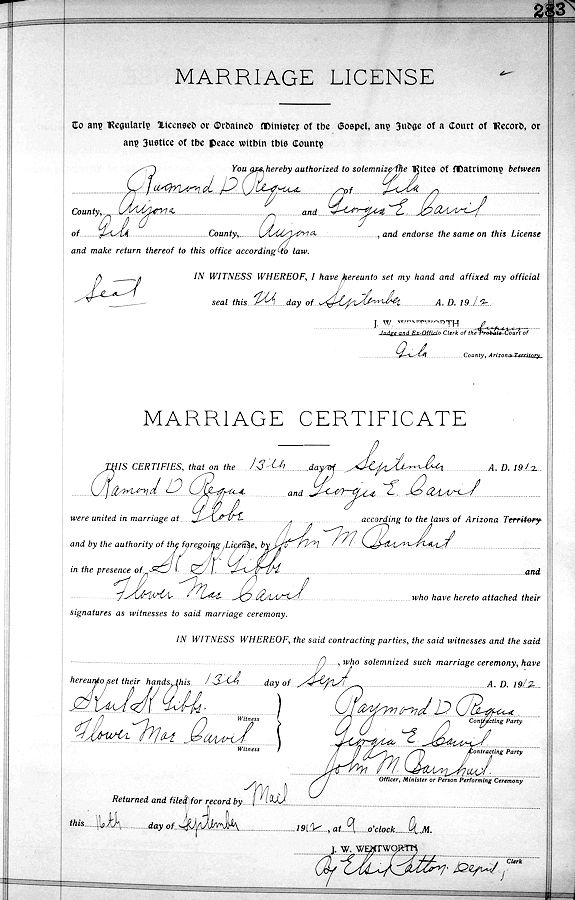 283
MARRIAGE LICENSE
To any Regularly Licensed or Ordained Minister of the Gospel, any Judge of a Court of Record, or
any Justice of the Peace within this County
You are hereby authorized to solemnize the Rites of Matrimony between
Raymond D Requa of Gila
County, Arizona and Georgia E. Carvil
of Gila County, Arizona, and endorse the same on this License
and make return thereof to this office according to law.
IN WITNESS WHEREOF, I have hereunto set my hand and affixed my official
Seal seal this day of September A. D. 1912
J. W. WENTWORTH
Judge and Ex-Officio Clerk of the Probate Superior Court of
Gila County, Arizona Territory
MARRIAGE CERTIFICATE
THIS CERTIFIES, that on the 13th day of September A. D. 1912
Ramond D Requa and Georgia E. Carvil
were united in marriage at Globe according to the laws of Arizona Territory
and by the authority of the foregoing License, by John M Barnhart
in the presence of K K Gibbs and
Flower Mae Carvil who have hereto attached their
signatures as witnesses to said marriage ceremony.
IN WITNESS WHEREOF, the said contracting parties, the said witnesses and the said
, who solemnized such marriage ceremony, have
hereunto set their hands, this 13th day of Sept A. D. 1912
Karl K Gibbs. Witness
Raymond D Requa Contracting Party
Flower Mae Carvil Witness
Georgia E Carvil Contracting Party
John M Barnhart.
Officer, Minister or Person Performing Ceremony
Returned and filed for record by Mail
this 16th day of September 1912, at 9 o'clock A M.
J. W. WENTWORTH Clerk
By Elsie Patton Deputy